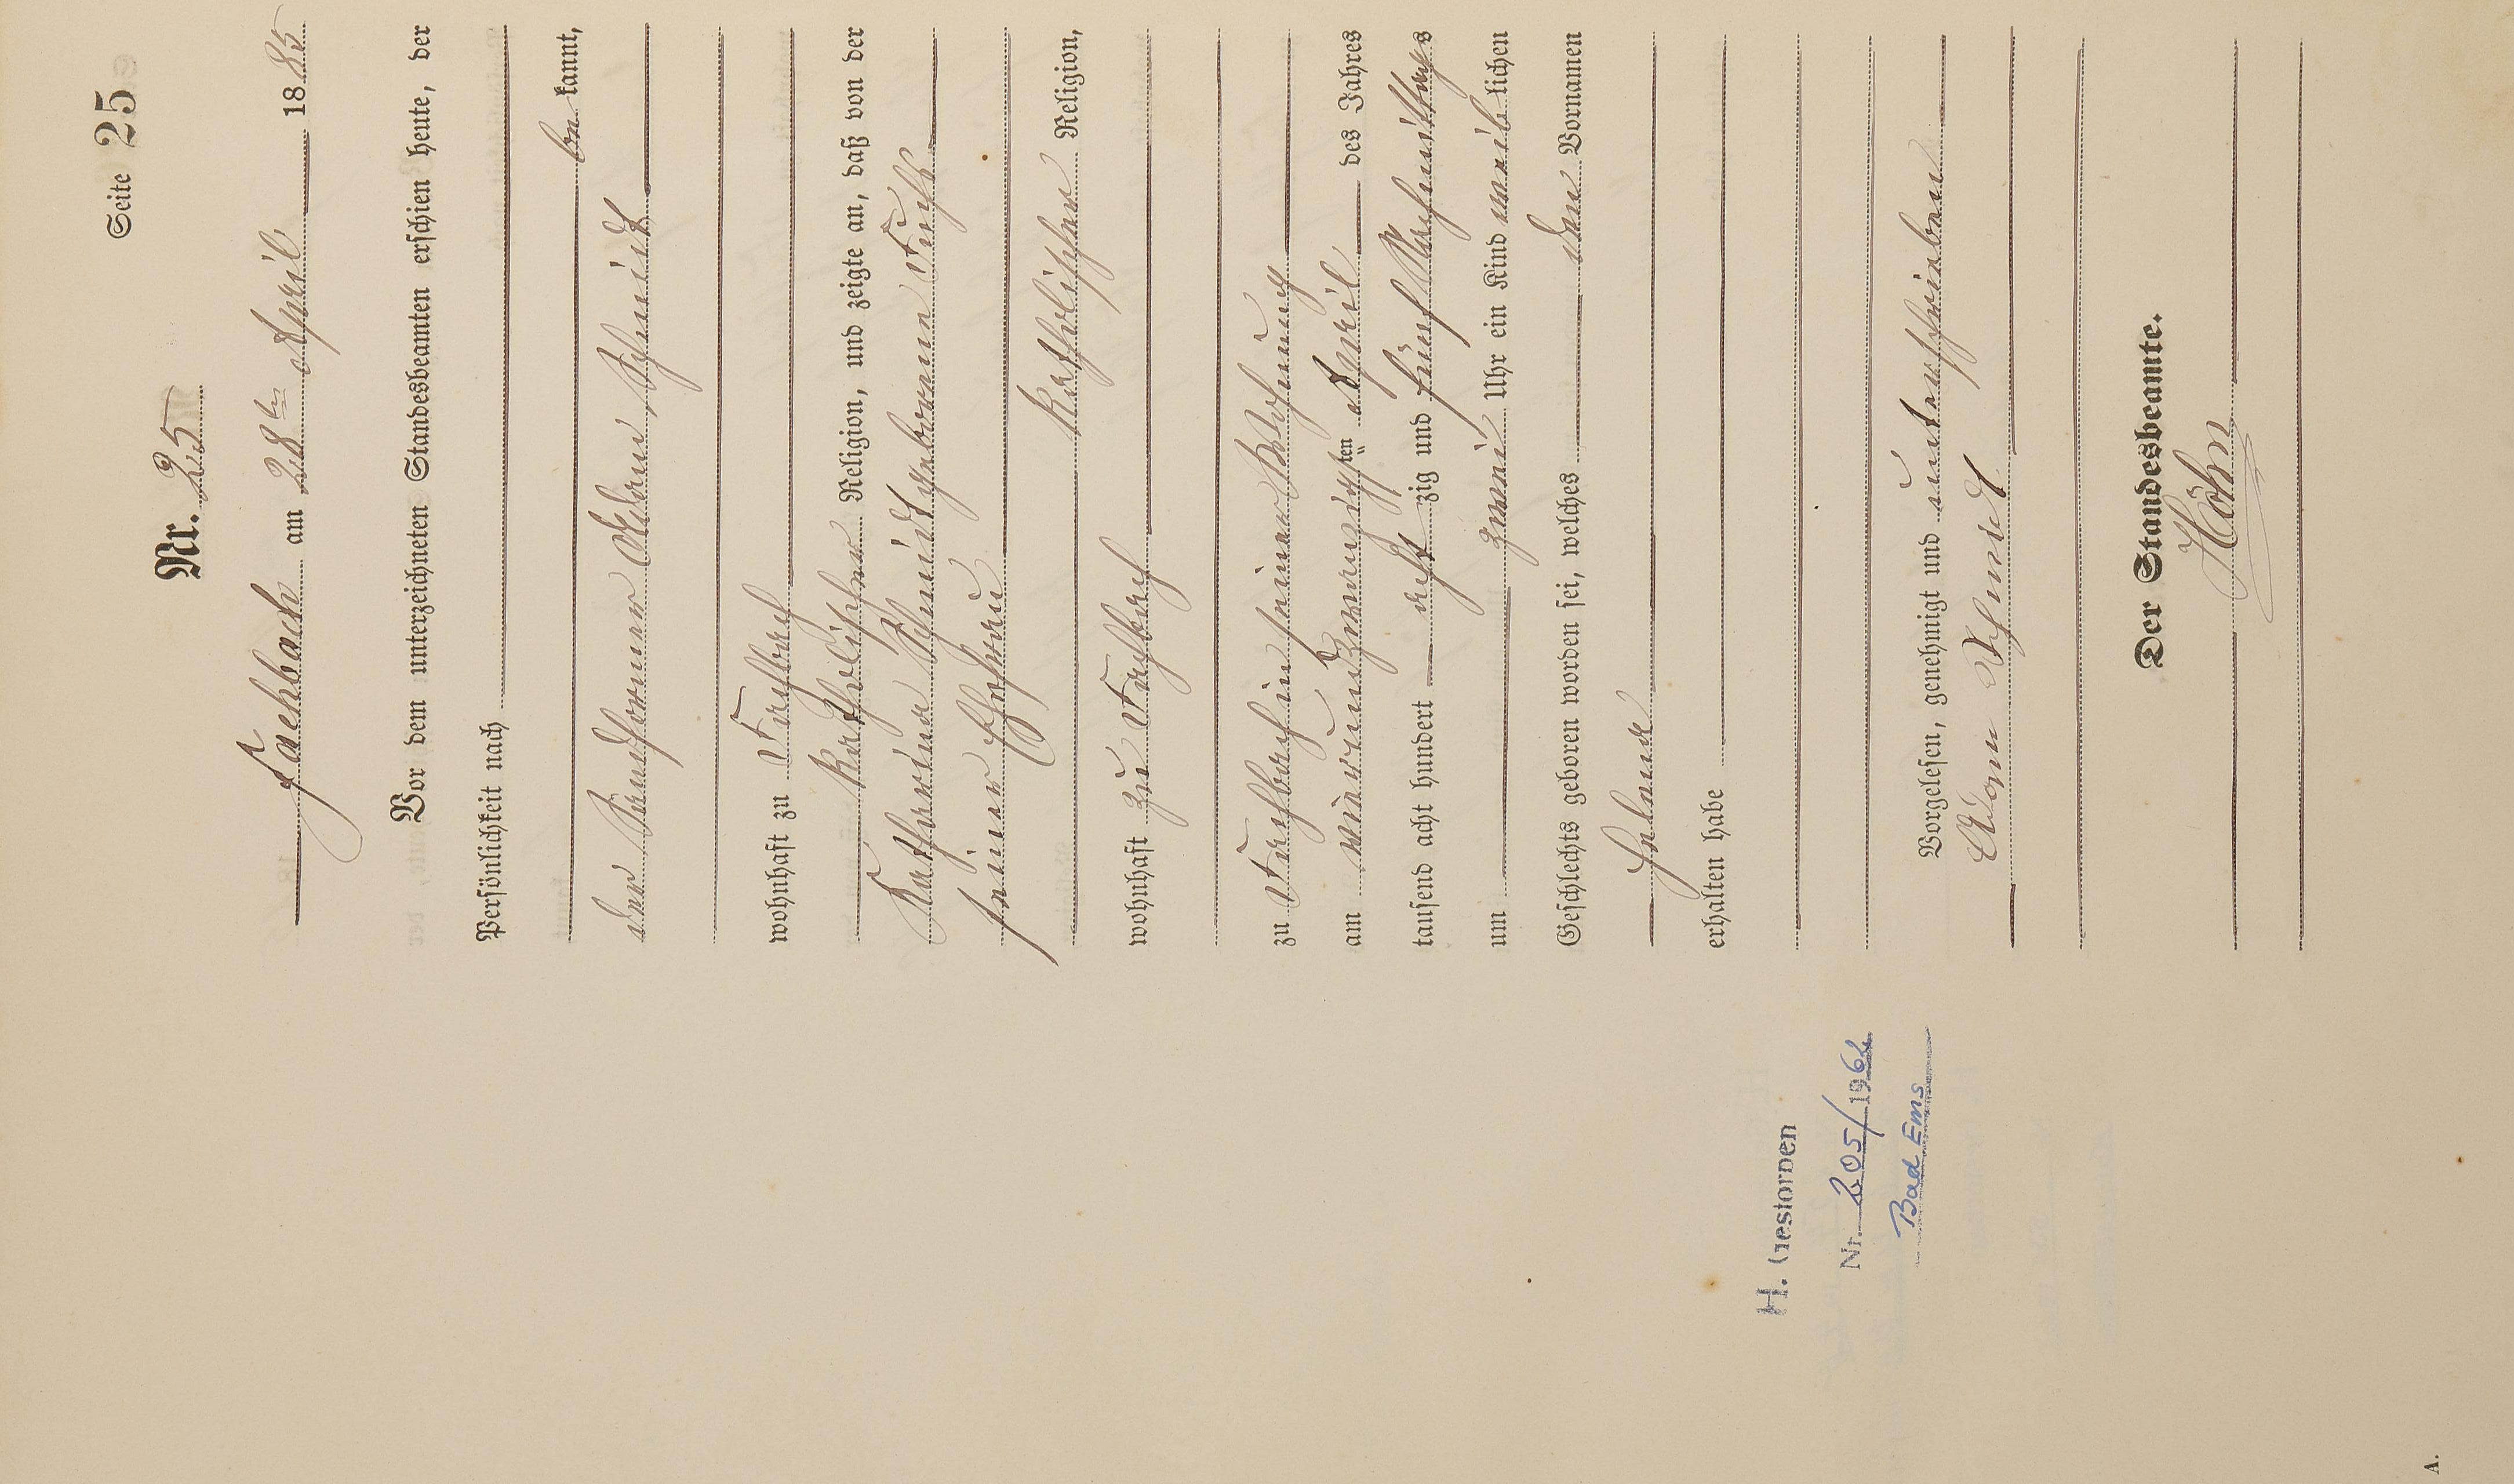 Seite 25
Nr. 25
Fachbach am 28ten April 1885
Vor dem unterzeichneten Standesbeamten erschien heute, der
Persönlichkeit nach
be kannt,
der Taufformer Adam Schmidt
wohnhaft zu Fachbach
katholischer Religion, und zeigte an, daß von der
Katharina Schmidt geborenen Fuchs
seiner Ehefrau
katholischer Religion,
wohnhaft zu Fachbach
zu Fachbach in seiner Wohnung
am vierundzwanzigsten April des Jahres
tausend acht hundert acht zig und fünf Nachmittags
um zwei Uhr ein Kind weib lichen
Geschlechts geboren worden sei, welches den Vornamen
Helena
erhalten habe
Vorgelesen, genehmigt und unterschrieben
Adam Schmidt
Der Standesbeamte.
Höhn
H. Gestorben
Nr. 205/1962
Bad Ems
A.